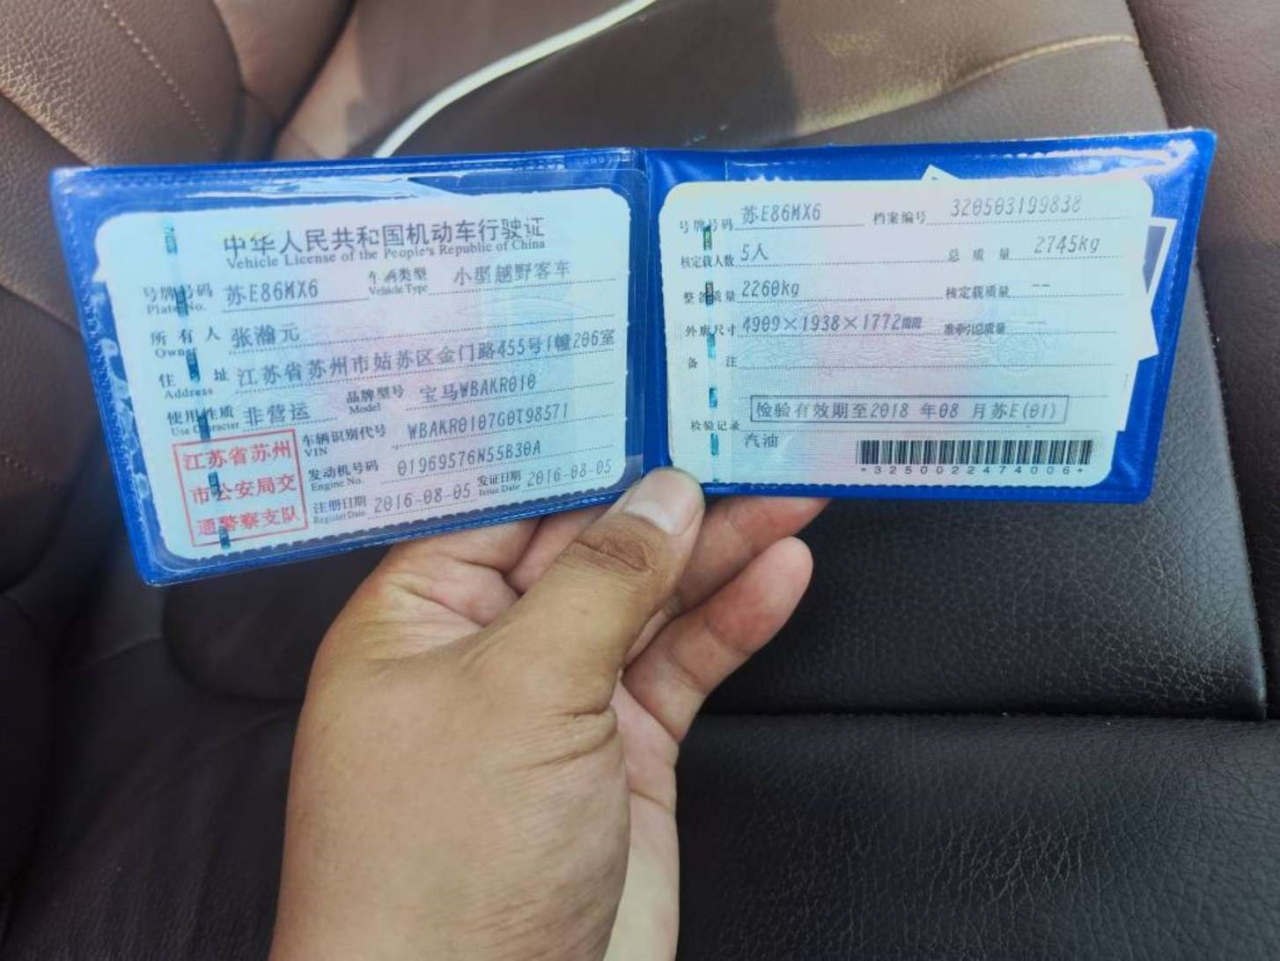 中华人民共和国机动车行驶证
Vehicle License of the People's Republic of China
号牌号码 苏E86MX6 车辆类型 小型越野客车
Plate No. Vehicle Type
所有人 张瀚元
Owner
住址 江苏省苏州市姑苏区金门路455号1幢206室
Address
使用性质 非营运 品牌型号 宝马WBAKR010
Use Character Model
江苏省苏州
市公安局交
通警察支队
车辆识别代号 WBAKR0107G0T98571
VIN
发动机号码 01969576N55B30A
Engine No.
注册日期 2016-08-05 发证日期 2016-08-05
Register Date Issue Date
号牌号码 苏E86MX6 档案编号 320503199838
核定载人数 5人 总质量 2745kg
整备质量 2260kg 核定载质量 --
外廓尺寸 4909×1938×1772mm 准牵引总质量 --
备注
检验有效期至2018 年08 月苏E(01)
检验记录
汽油
*3250022474006*